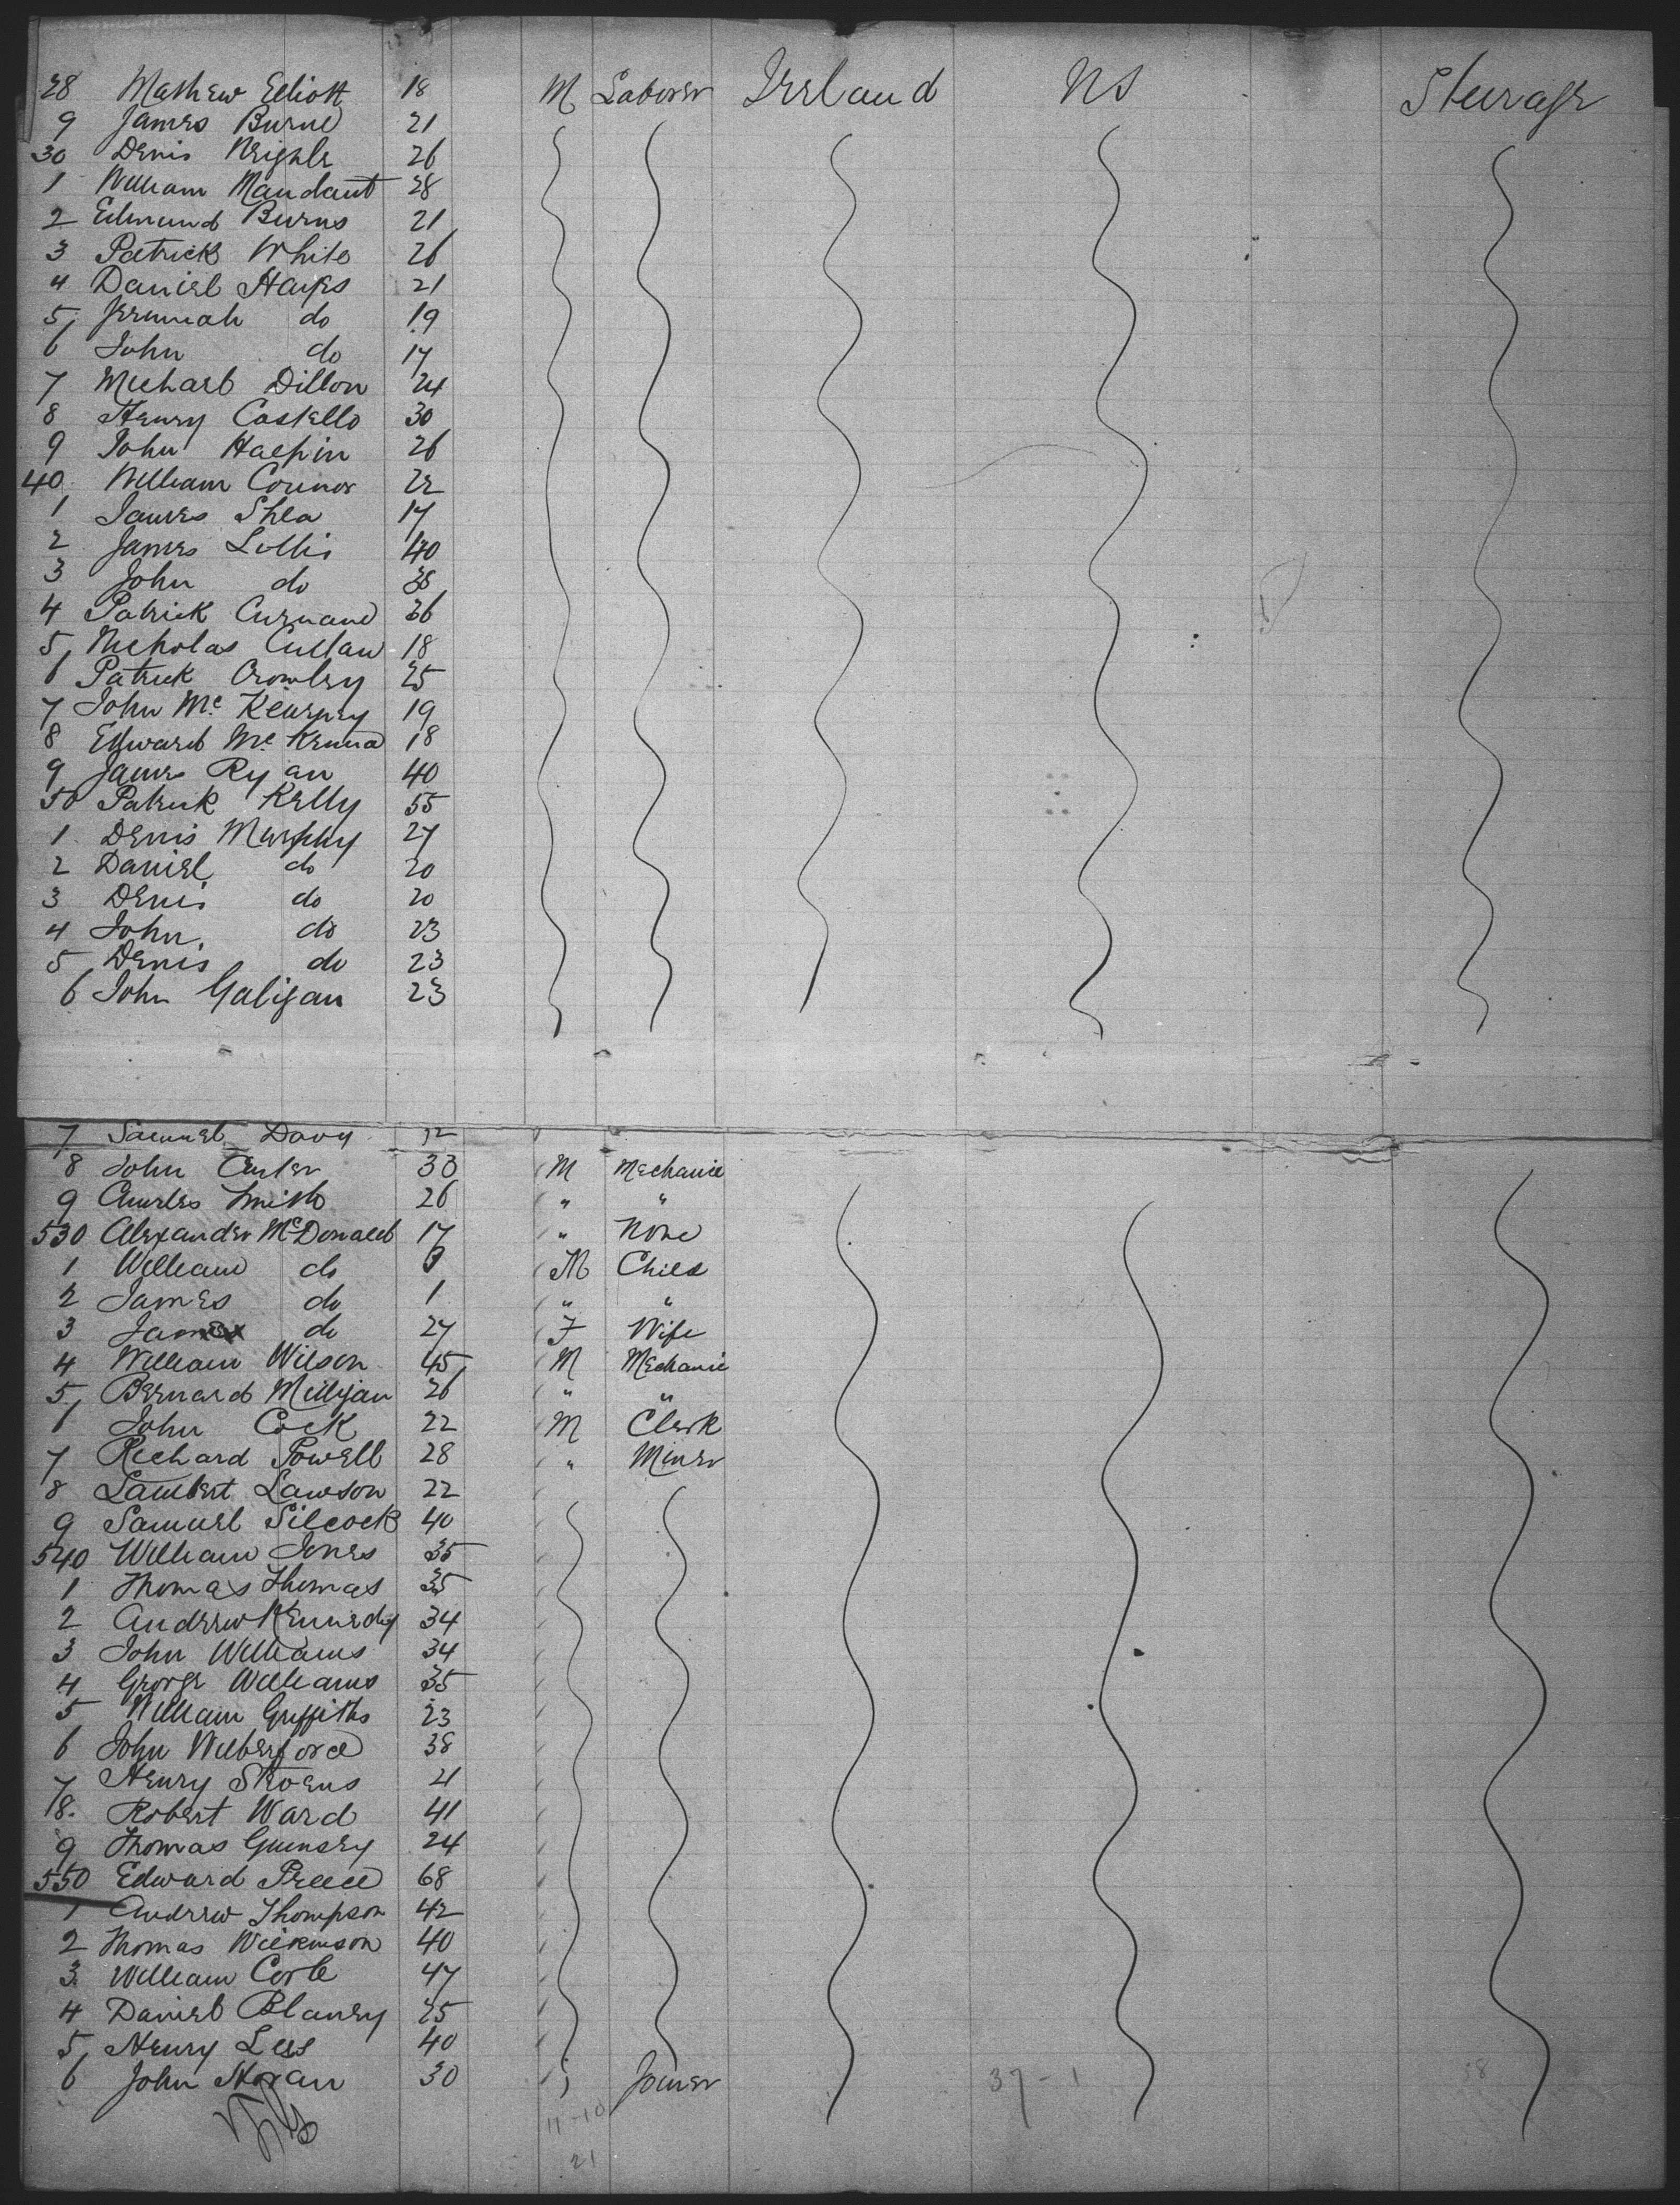 28 Mathew Elliott 18 M Laborer Ireland NS Steerage
9 James Burne 21
30 Denis Neighle 26
1 William Mandaut 28
2 Edmund Burns 21
3 Patrick White 26
4 Daniel Hayes 21
5 Jeremiah do 19
6 John do 17
7 Michael Dillon 24
8 Henry Costello 30
9 John Halpin 26
40 William Connor 22
1 James Shea 17
2 James Lollis 40
3 John do 38
4 Patrick Curnane 36
5 Nicholas Cullan 18
6 Patrick Crowley 25
7 John Mc Kearney 19
8 Edward Mc Kenna 18
9 James Ryan 40
50 Patrick Kelly 55
1 Denis Murphy 27
2 Daniel do 20
3 Denis do 20
4 John do 23
5 Denis do 23
6 John Galigan 23
7 Samuel Davy 32
8 John Carter 33 M Mechanic
9 Charles Smith 26 " "
530 Alexander McDonald 17 " None
1 William do M Child
2 James do 1 " "
3 Jane do 27 F Wife
4 William Wilson 45 M Mechanic
5 Bernard Milligan 26 " "
6 John Cock 22 M Clerk
7 Richard Powell 28 " Miner
8 Lambert Lawson 22
9 Samuel Silcock 40
540 William Jones 35
1 Thomas Thomas 35
2 Andrew Kennedy 34
3 John Williams 34
4 George Williams 35
5 William Griffiths 23
6 John Wilberforce 38
7 Henry Stevens 21
8. Robert Ward 41
9 Thomas Guinsey 24
550 Edward Preece 68
1 Andrew Thompson 42
2 Thomas Wilkinson 40
3. William Corle 47
4 Daniel Blaney 25
5 Henry Lees 40
6 John Horan 30 Joiner
37 - 1
11-10
21